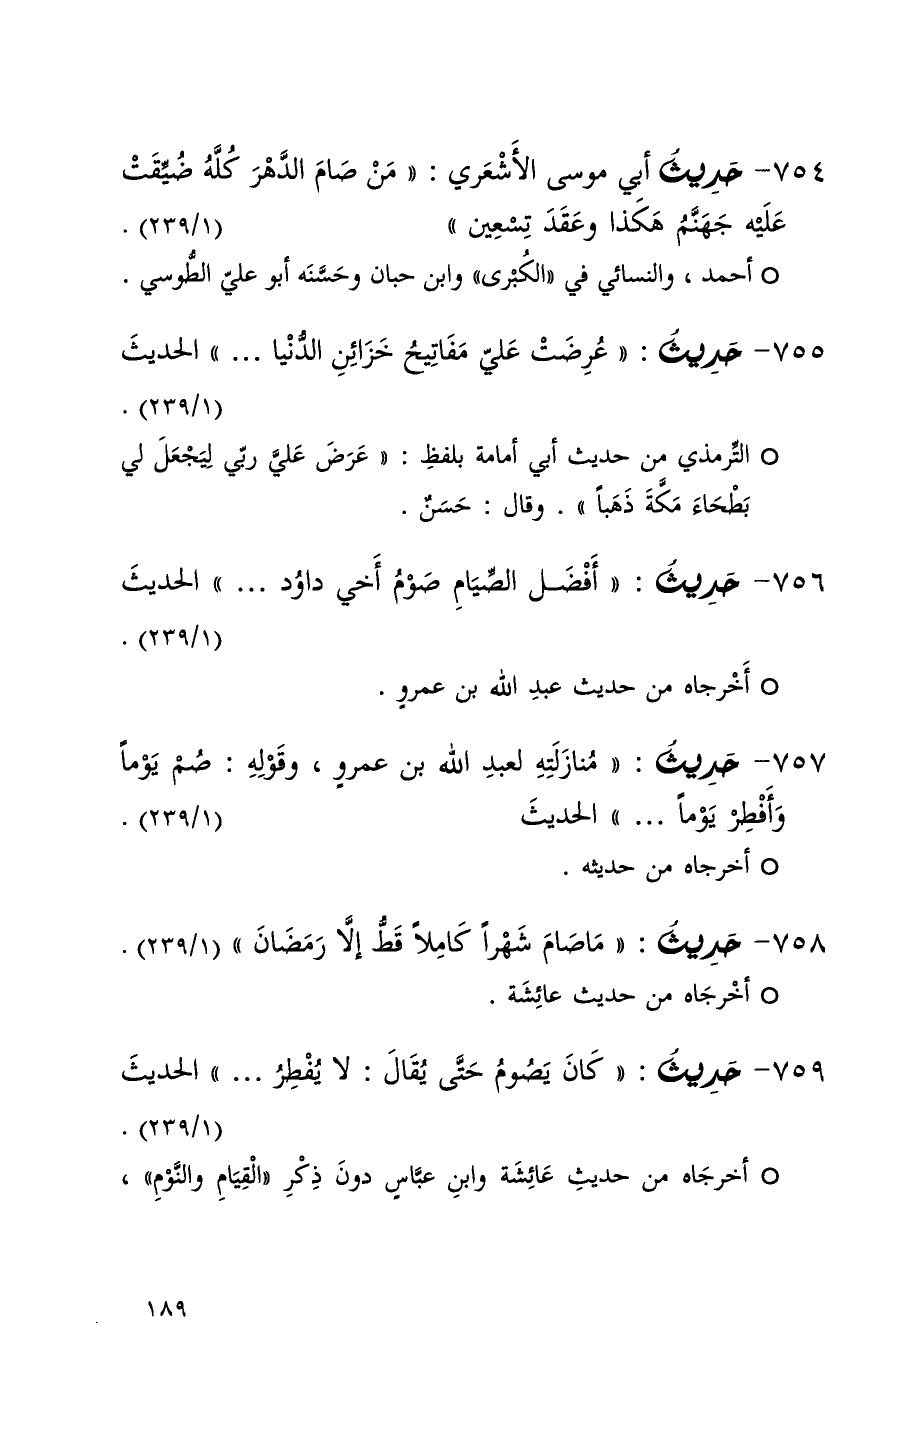 ٧٥٤- حَدِيثُ أبي موسى الأَشْعَري : « مَنْ صَامَ الدَّهْرَ كُلَّهُ ضُيِّقَتْ
عَلَيْه جَهَنَّمُ هَكَذا وعَقَدَ تِسْعِين » (٢٣٩/١) .
○ أحمد ، والنسائي في «الكُبْرى» وابن حبان وحَسَّنَه أبو عليّ الطُّوسي .
٧٥٥- حَدِيثُ : « عُرِضَتْ عَليّ مَفَاتِيحُ خَزَائِنِ الدُّنْيا ... » الحديثَ
(٢٣٩/١) .
○ التِّرمذي من حديث أبي أمامة بلفظِ : « عَرَضَ عَليَّ ربّي لِيَجْعَلَ لي
بَطْحَاءَ مَكَّةَ ذَهَباً » . وقال : حَسَنٌ .
٧٥٦- حَدِيثُ : « أَفْضَـل الصِّيَامِ صَوْمُ أَخي داوُد ... » الحديثَ
(٢٣٩/١) .
○ أَخْرجاه من حديث عبدِ الله بن عمروٍ .
٧٥٧- حَدِيثُ : « مُنازَلَتِهِ لعبدِ الله بن عمروٍ ، وقَوْلِهِ : صُمْ يَوْماً
وَأَفْطِرْ يَوْماً ... » الحديثَ (٢٣٩/١) .
○ أخرجاه من حديثه .
٧٥٨- حَدِيثُ : « مَاصَامَ شَهْراً كَامِلاً قَطُّ إلَّا رَمَضَانَ » (٢٣٩/١) .
○ أخْرجَاه من حديث عائِشَة .
٧٥٩- حَدِيثُ : « كَانَ يَصُومُ حَتَّى يُقَالَ : لا يُفْطِرُ ... » الحديثَ
(٢٣٩/١) .
○ أخرجَاه من حديثِ عَائِشَة وابنِ عبَّاسٍ دونَ ذِكْرِ «الْقِيَامِ والنَّوْمِ» ،
١٨٩